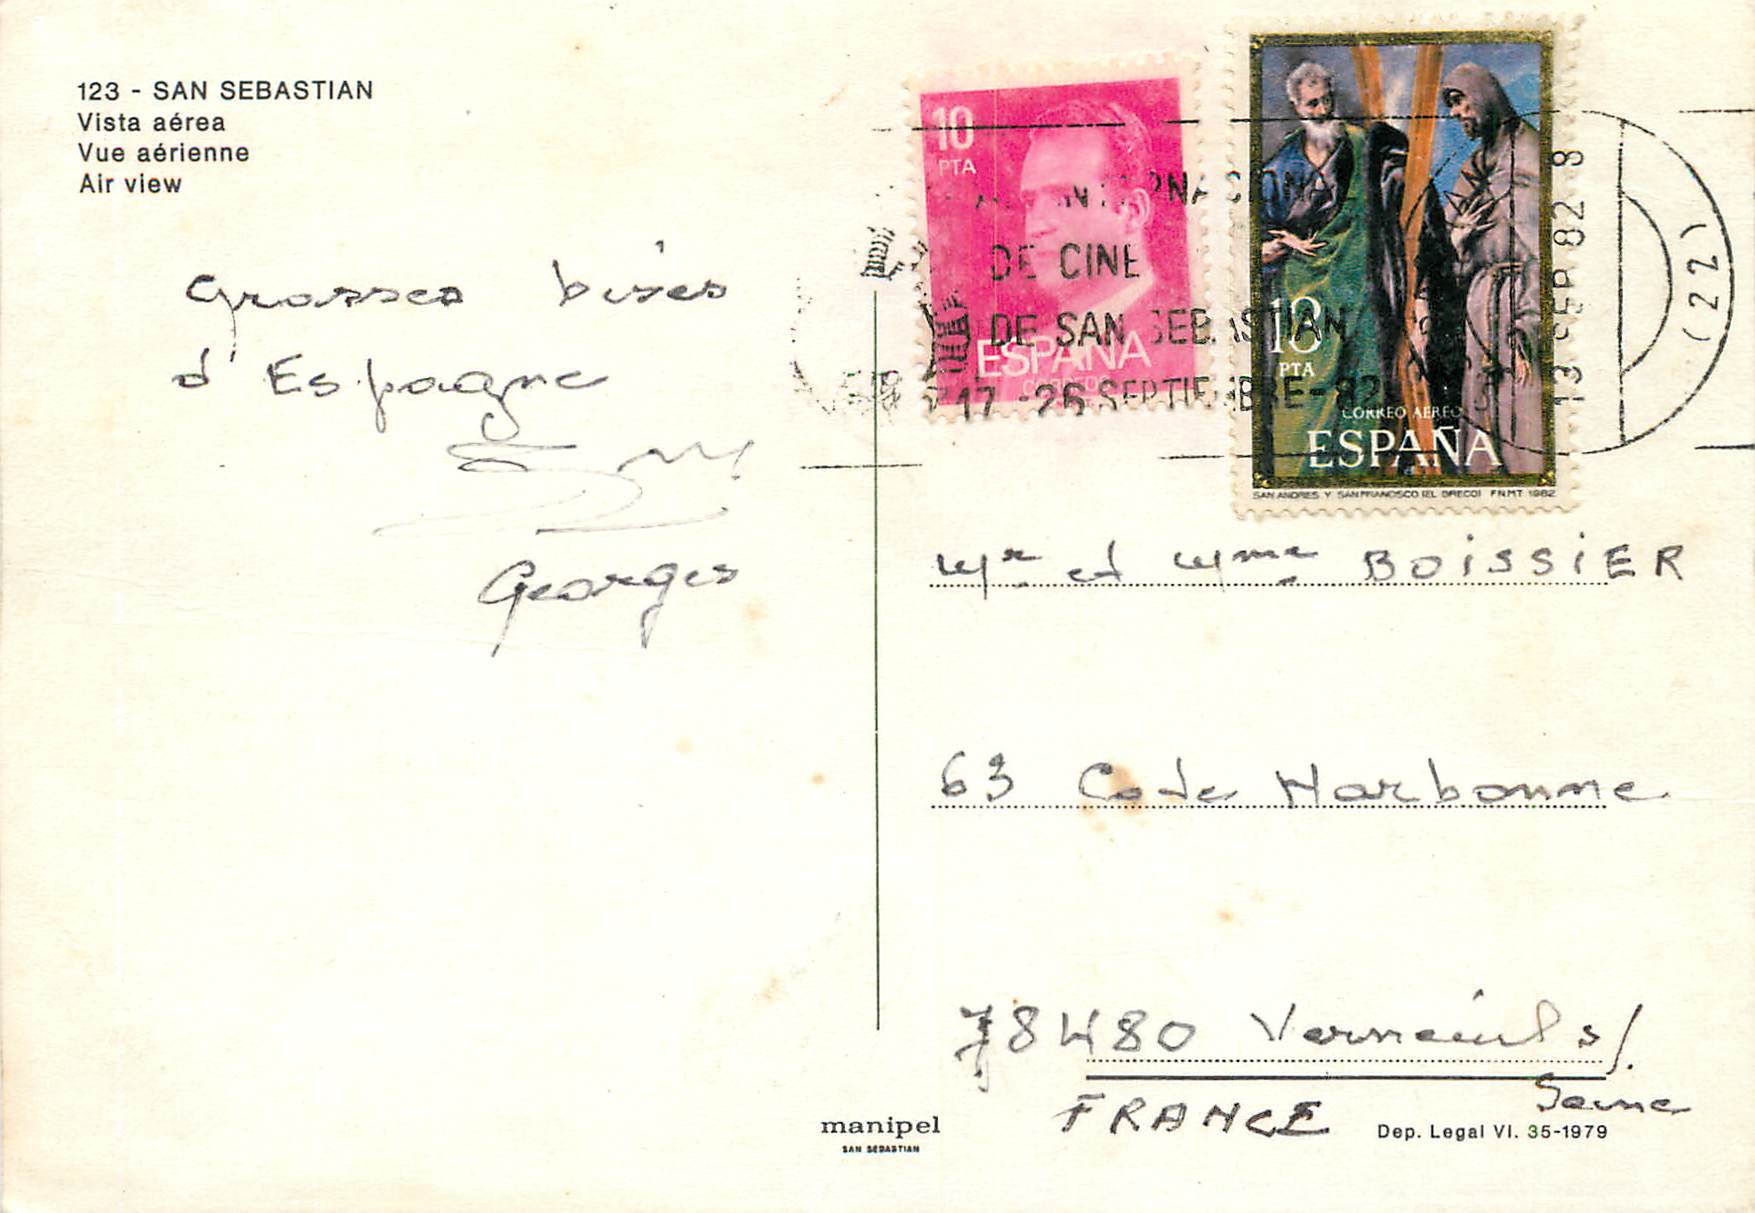 123 - SAN SEBASTIAN
Vista aérea
Vue aérienne
Air view
Grosses bises
d'Espagne
Georges
10
PTA
ESPAÑA
CORREOS
18
PTA
CORREO AEREO
ESPAÑA
SAN ANDRES Y SAN FRANCISCO (EL GRECO) FNMT 1982
INTERNACIONAL
DE CINE
DE SAN SEBASTIAN
17-26 SEPTIEMBRE-82
13 SEP 82 8
(22)
Mr et Mme BOISSIER
63 Code Narbonne
78480 Verneuil s/
Seine
FRANCE
manipel
SAN SEBASTIAN
Dep. Legal VI. 35-1979